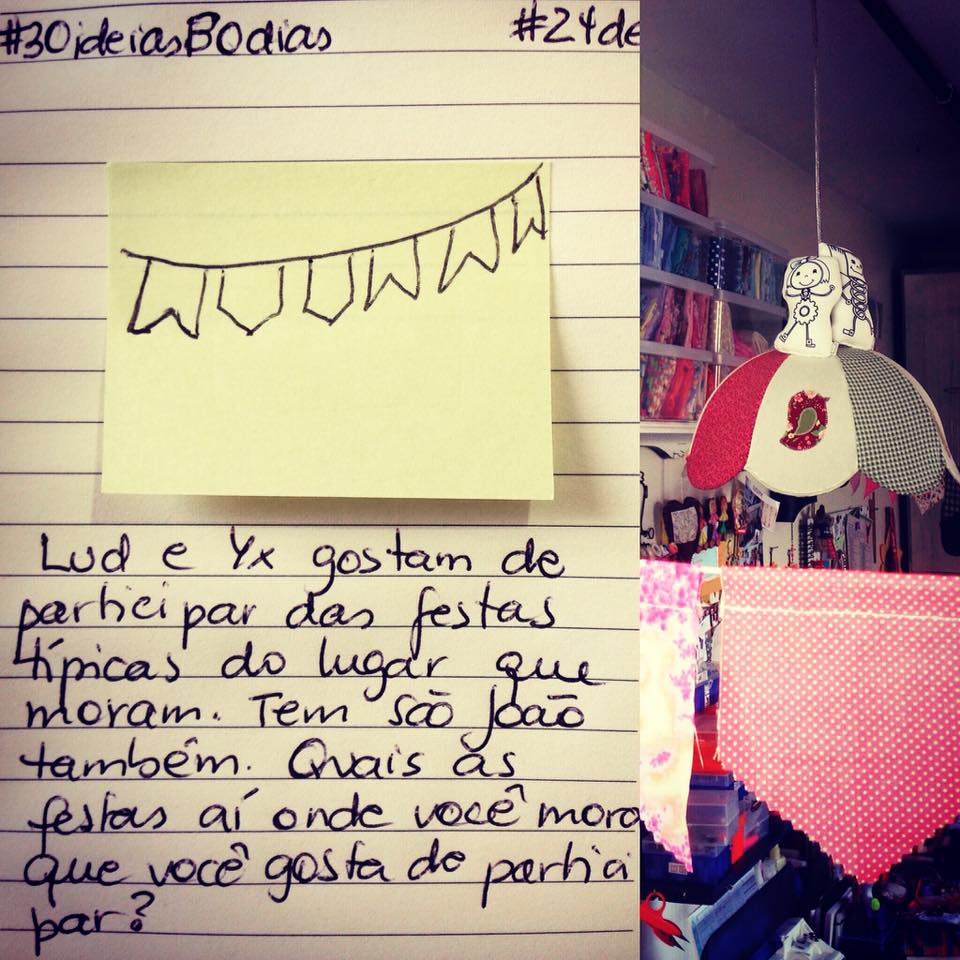 #30ideias30dias #24de
Lud e Yx gostam de
participar das festas
típicas do lugar que
moram. Tem são joão
também. Quais as
festas aí onde você mora
que você gosta de partici
par?